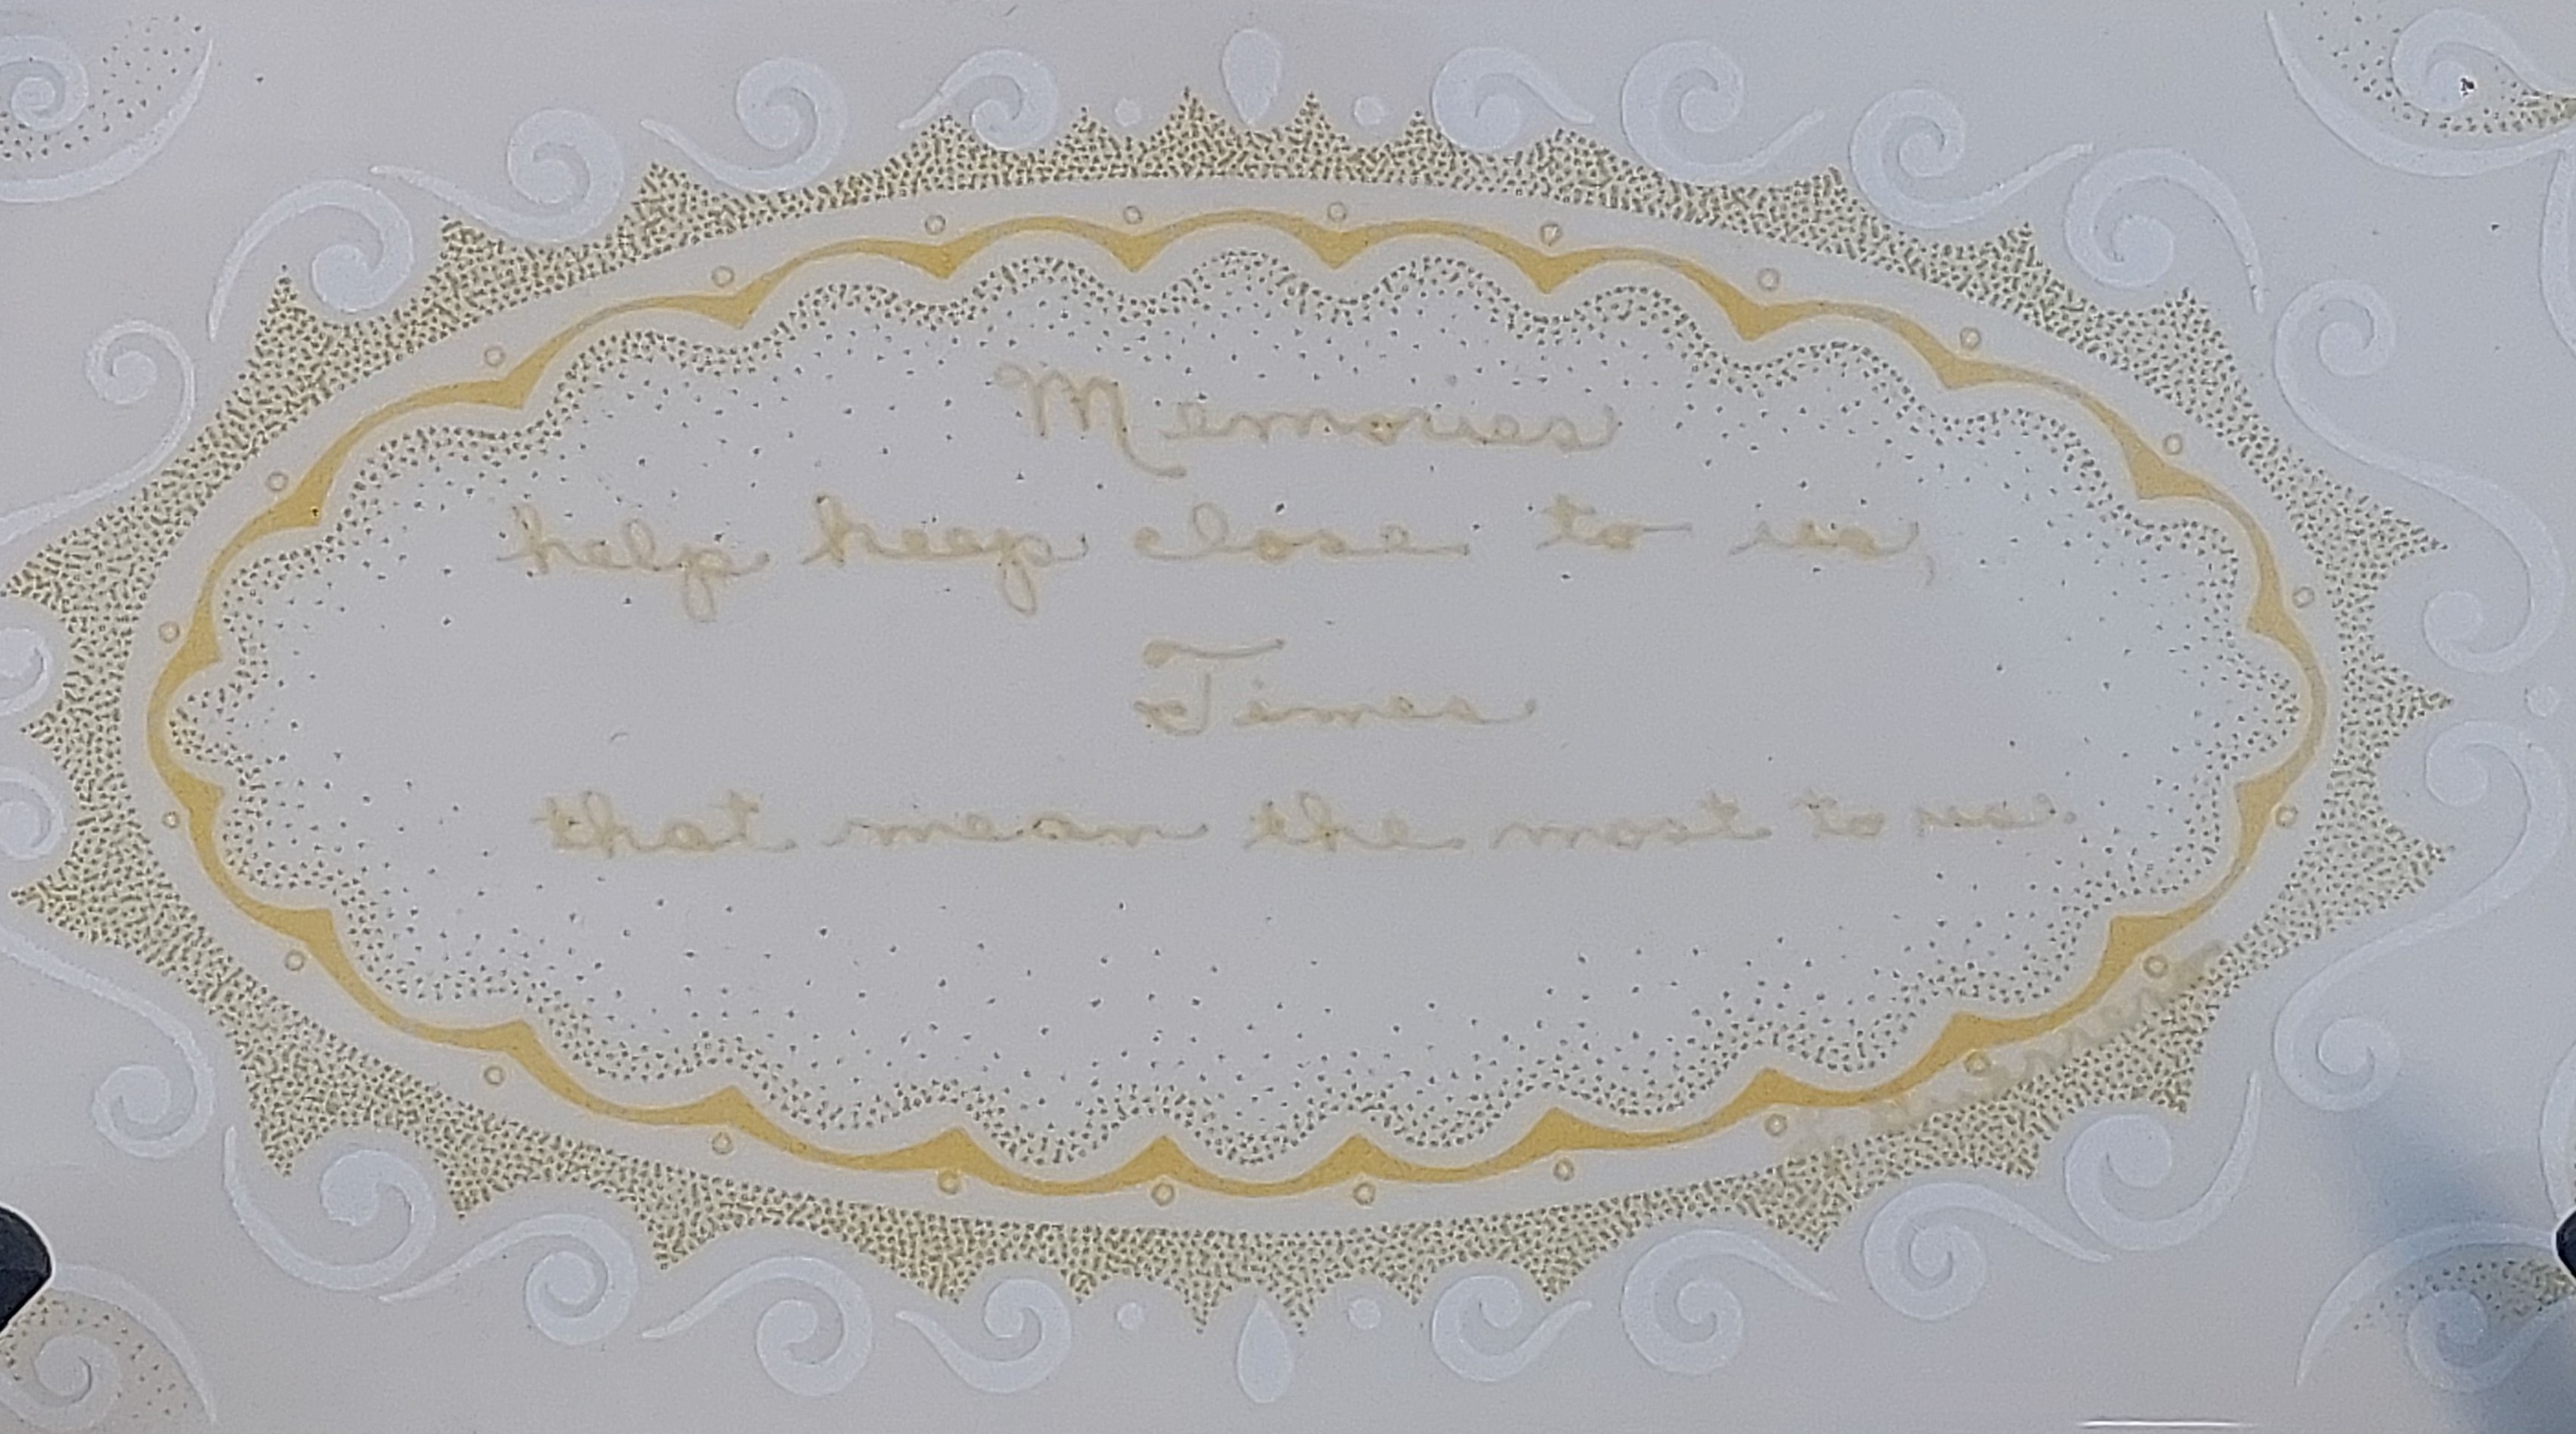 Memories
help keep close to us,
Times
that mean the most to us.